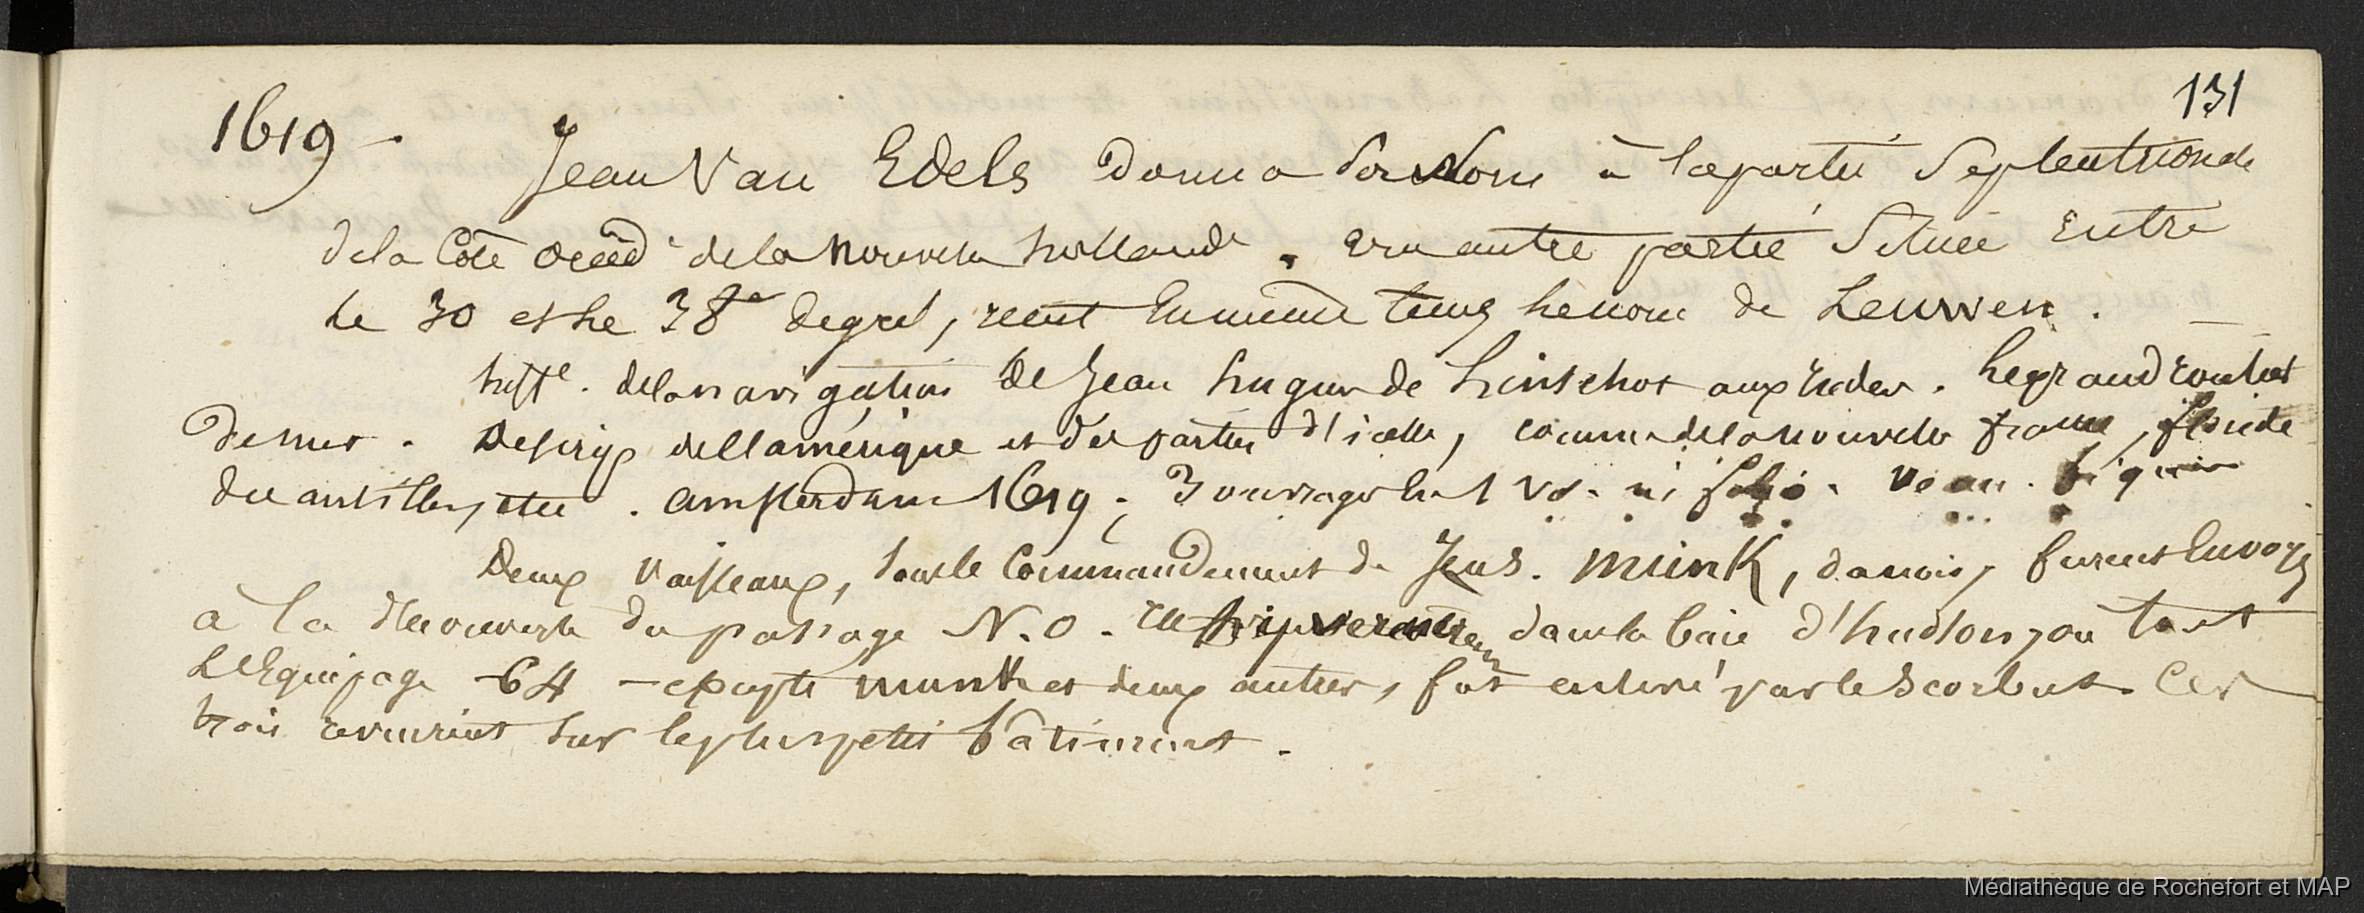 131
1619 -
Jean Van Edels donna son Nom à la partie Septentrionale
de la Côte Occid.e de la nouvelle hollande. une autre partie située Entre
le 30 et le 38e degrés, recut en même tems le nom de Leuwen.
hist.e de la navigation de Jean hugues de Linschot aux indes. le grand routier
de mer. Descrip de l'amérique et des parties d'icelle, comme de la nouvelle france, floride
des antilles, etc. amsterdam 1619; 3 ouvrages en 1 vol. in folio. veau. figures
Deux vaisseaux, sous le Commandement de Jens. Munk, danois, furent Envoyés
à la découverte du passage N.O. ils hivernèrent dans la baie d'hudson, ou tout
L'Equipage -64 - excepté munk et deux autres, fut enlevé par le Scorbut. Ces
trois revinrent sur le plus petit bâtiment.
Médiathèque de Rochefort et MAP